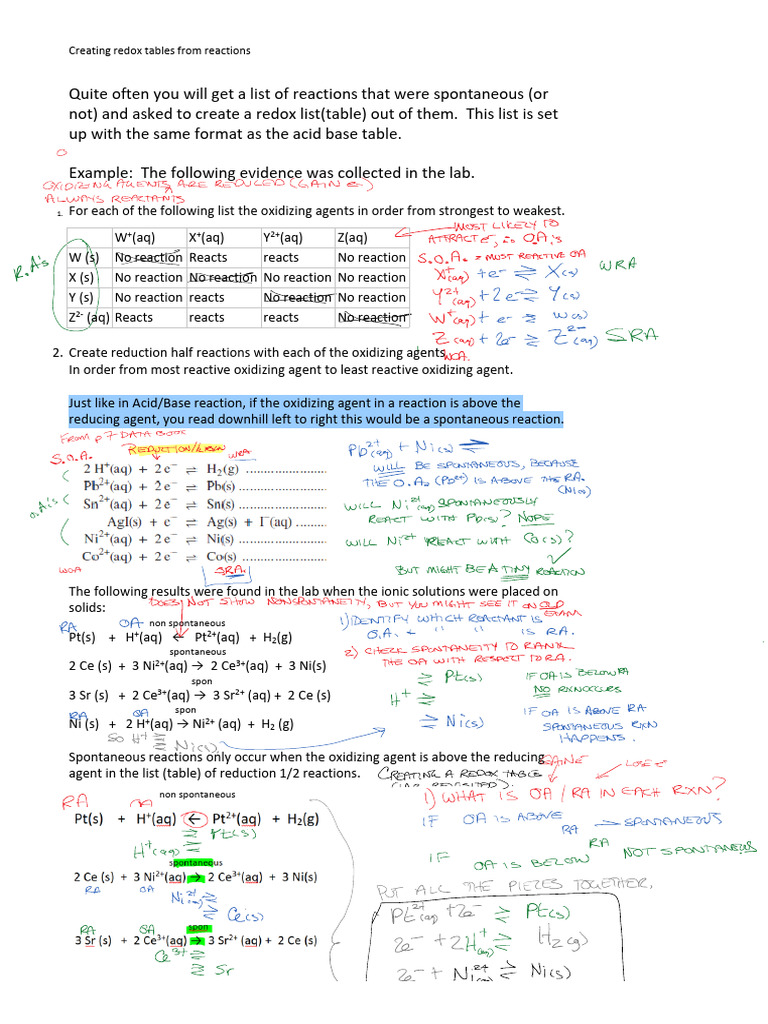 Creating redox tables from reactions
Quite often you will get a list of reactions that were spontaneous (or
not) and asked to create a redox list(table) out of them. This list is set
up with the same format as the acid base table.
Example: The following evidence was collected in the lab.
OXIDIZING AGENTS ARE REDUCED (GAIN e⁻)
ALWAYS REACTANTS
1. For each of the following list the oxidizing agents in order from strongest to weakest.
MOST LIKELY TO
ATTRACT e⁻, is O.A.'s
W⁺(aq) X⁺(aq) Y²⁺(aq) Z(aq)
W (s) No reaction Reacts reacts No reaction
X (s) No reaction No reaction No reaction No reaction
Y (s) No reaction reacts No reaction No reaction
Z²⁻ (aq) Reacts reacts reacts No reaction
R.A's
S.O.A. = MOST REACTIVE OA
X⁺(aq) + e⁻ ⇌ X(s) WRA
Y²⁺(aq) + 2e⁻ ⇌ Y(s)
W⁺(aq) + e⁻ ⇌ W(s)
Z(aq) + 2e⁻ ⇌ Z²⁻(aq) SRA
WOA.
2. Create reduction half reactions with each of the oxidizing agents
In order from most reactive oxidizing agent to least reactive oxidizing agent.
Just like in Acid/Base reaction, if the oxidizing agent in a reaction is above the
reducing agent, you read downhill left to right this would be a spontaneous reaction.
FROM p7 DATA BOOK
S.O.A. REDUCTION WRA
2 H⁺(aq) + 2 e⁻ ⇌ H₂(g) ........................
Pb²⁺(aq) + 2 e⁻ ⇌ Pb(s) ........................
Sn²⁺(aq) + 2 e⁻ ⇌ Sn(s) ........................
AgI(s) + e⁻ ⇌ Ag(s) + I⁻(aq) .........
Ni²⁺(aq) + 2 e⁻ ⇌ Ni(s) ........................
Co²⁺(aq) + 2 e⁻ ⇌ Co(s) ........................
O.A's
WOA SRA
Pb²⁺(aq) + Ni(s) ⇌
WILL BE SPONTANEOUS, BECAUSE
THE O.A. (Pb²⁺) IS ABOVE THE RA.
(Ni(s))
WILL Ni²⁺(aq) SPONTANEOUSLY
REACT WITH Pb(s)? NOPE
WILL Ni²⁺ REACT WITH Co(s)?
BUT MIGHT BE A TINY REACTION
The following results were found in the lab when the ionic solutions were placed on
solids:
DOES NOT SHOW NONSPONTANEITY, BUT YOU MIGHT SEE IT ON OLD
EXAM
RA OA non spontaneous
Pt(s) + H⁺(aq) ← Pt²⁺(aq) + H₂(g)
spontaneous
2 Ce (s) + 3 Ni²⁺(aq) → 2 Ce³⁺(aq) + 3 Ni(s)
spon
3 Sr (s) + 2 Ce³⁺(aq) → 3 Sr²⁺ (aq) + 2 Ce (s)
RA OA spon
Ni (s) + 2 H⁺(aq) → Ni²⁺ (aq) + H₂ (g)
So H⁺ ⇌
⇌ Ni(s)
1) IDENTIFY WHICH REACTANT IS
O.A. + " " IS RA.
2) CHECK SPONTANEITY TO RANK
THE OA WITH RESPECT TO RA.
⇌ Pt(s) IF OA IS BELOW RA
H⁺ ⇌ NO RXN OCCURS
⇌ Ni(s) IF OA IS ABOVE RA
SPONTANEOUS RXN
HAPPENS.
Spontaneous reactions only occur when the oxidizing agent is above the reducing
agent in the list (table) of reduction 1/2 reactions.
CREATING A REDOX TABLE
LOSE e⁻
RA OA non spontaneous
Pt(s) + H⁺(aq) ← Pt²⁺(aq) + H₂(g)
⇌ Pt(s)
H⁺(aq) ⇌
spontaneous
2 Ce (s) + 3 Ni²⁺(aq) → 2 Ce³⁺(aq) + 3 Ni(s)
RA OA
Ni²⁺(aq) ⇌
⇌ Ce(s)
RA OA spon
3 Sr (s) + 2 Ce³⁺(aq) → 3 Sr²⁺ (aq) + 2 Ce (s)
Ce³⁺ ⇌
⇌ Sr
1) WHAT IS OA / RA IN EACH RXN?
IF OA IS ABOVE RA → SPONTANEOUS
IF OA IS BELOW RA NOT SPONTANEOUS
PUT ALL THE PIEZES TOGETHER,
Pt²⁺(aq) + 2e⁻ ⇌ Pt(s)
2e⁻ + 2H⁺(aq) ⇌ H₂(g)
2e⁻ + Ni²⁺(aq) ⇌ Ni(s)